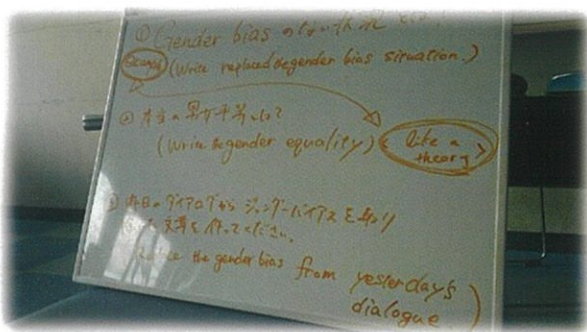 ① Gender bias のない状況とは?
Example (Write replaced gender bias situation.)
② 本当の男女平等について
(Write gender equality) < like a
theory >
のダイアログからジェンダーバイアスを
文章を作ってください。
the gender bias from yesterday's
dialogue)